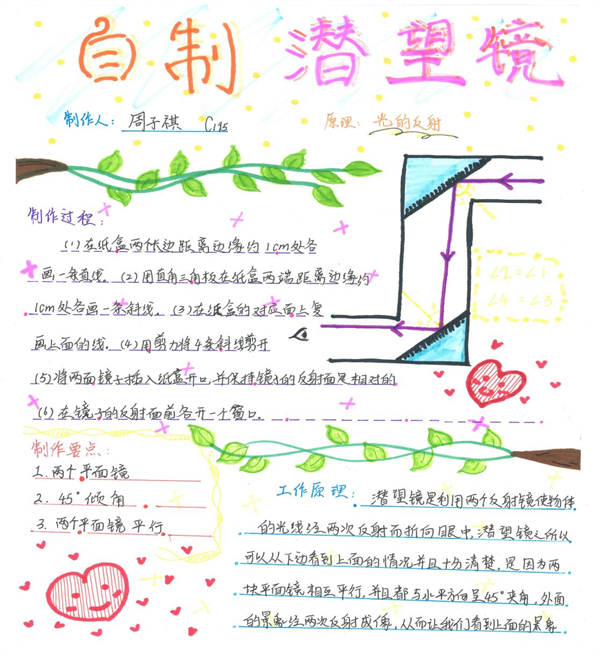 自制潜望镜
制作人：周子祺 C195
原理：光的反射
制作过程：
(1)在纸盒两侧边距离边缘约1cm处各
画一条直线。(2)用直角三角板在纸盒两端距离边缘约
1cm处各画一条斜线。(3)在纸盒的对应面上复
画上面的线。(4)用剪刀将4条斜线剪开
(5)将两面镜子插入纸盒开口,并保持镜子的反射面是相对的
(6)在镜子的反射面前各开一个窗口。
∠2=∠1
∠4=∠3
制作要点：
1.两个平面镜
2.45°倾角
3.两个平面镜平行
工作原理：潜望镜是利用两个反射镜使物体
的光线经两次反射而折向眼中,潜望镜之所以
可以从下边看到上面的情况并且十分清楚,是因为两
块平面镜相互平行,并且都与水平方向呈45°夹角,外面
的景象经两次反射成像,从而让我们看到上面的景象